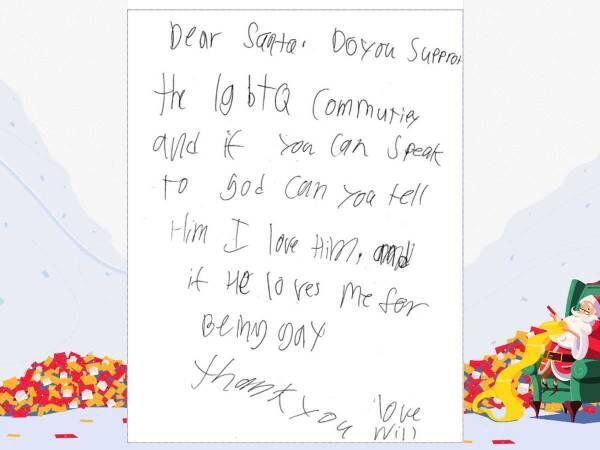 Dear Santa. Do you Support
the lgbtQ Community
and if you can speak
to god can you tell
Him I love Him, and
if He loves me for
Being gay
Thank you
love
Will